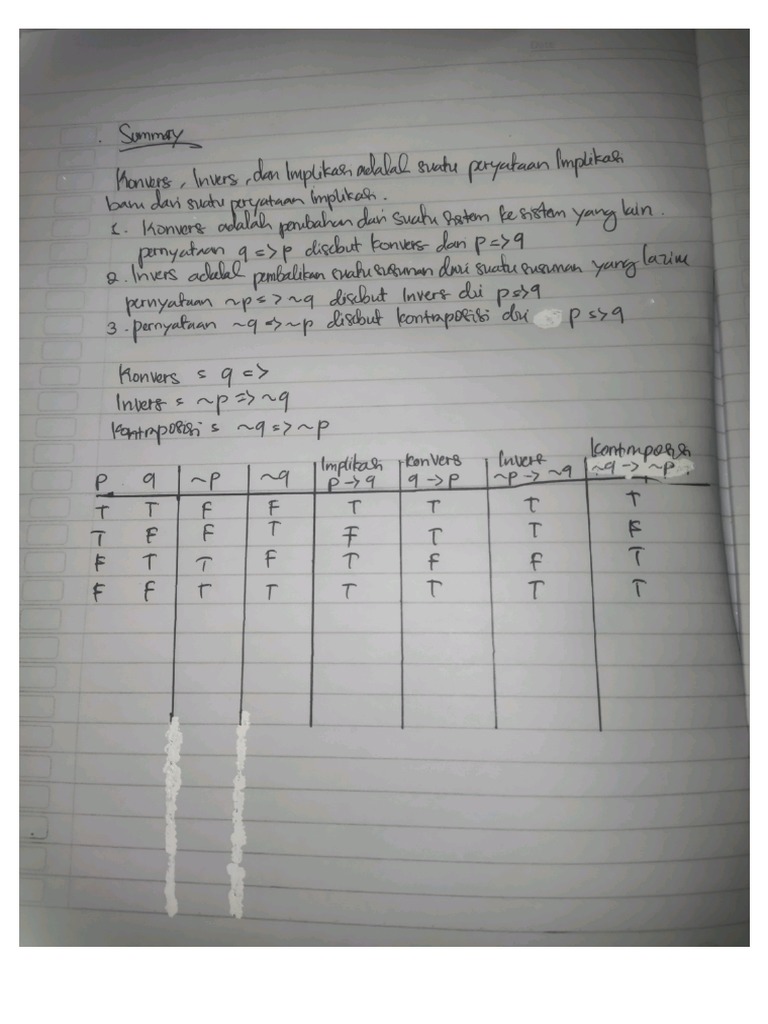 Date
. Summary
Konvers, Invers, dan Implikasi adalah suatu peryataan Implikasi
baru dari suatu peryataan implikasi.
1. Konvers adalah perubahan dari suatu sistem ke sistem yang lain.
pernyataan q => p disebut konvers dari p => q
2. Invers adalah pembalikan suatu susunan dari suatu susunan yang lazim
pernyataan ~p => ~q disebut Invers dri p => q
3. pernyataan ~q => ~p disebut kontraposisi dri p => q
Konvers = q =>
Invers = ~p => ~q
Kontraposisi = ~q => ~p
Implikasi Konvers Invers Kontraposisi
P q ~P ~q P → q q → P ~P → ~q ~q → ~P
T T F F T T T T
T F F T F T T F
F T T F T F F T
F F T T T T T T